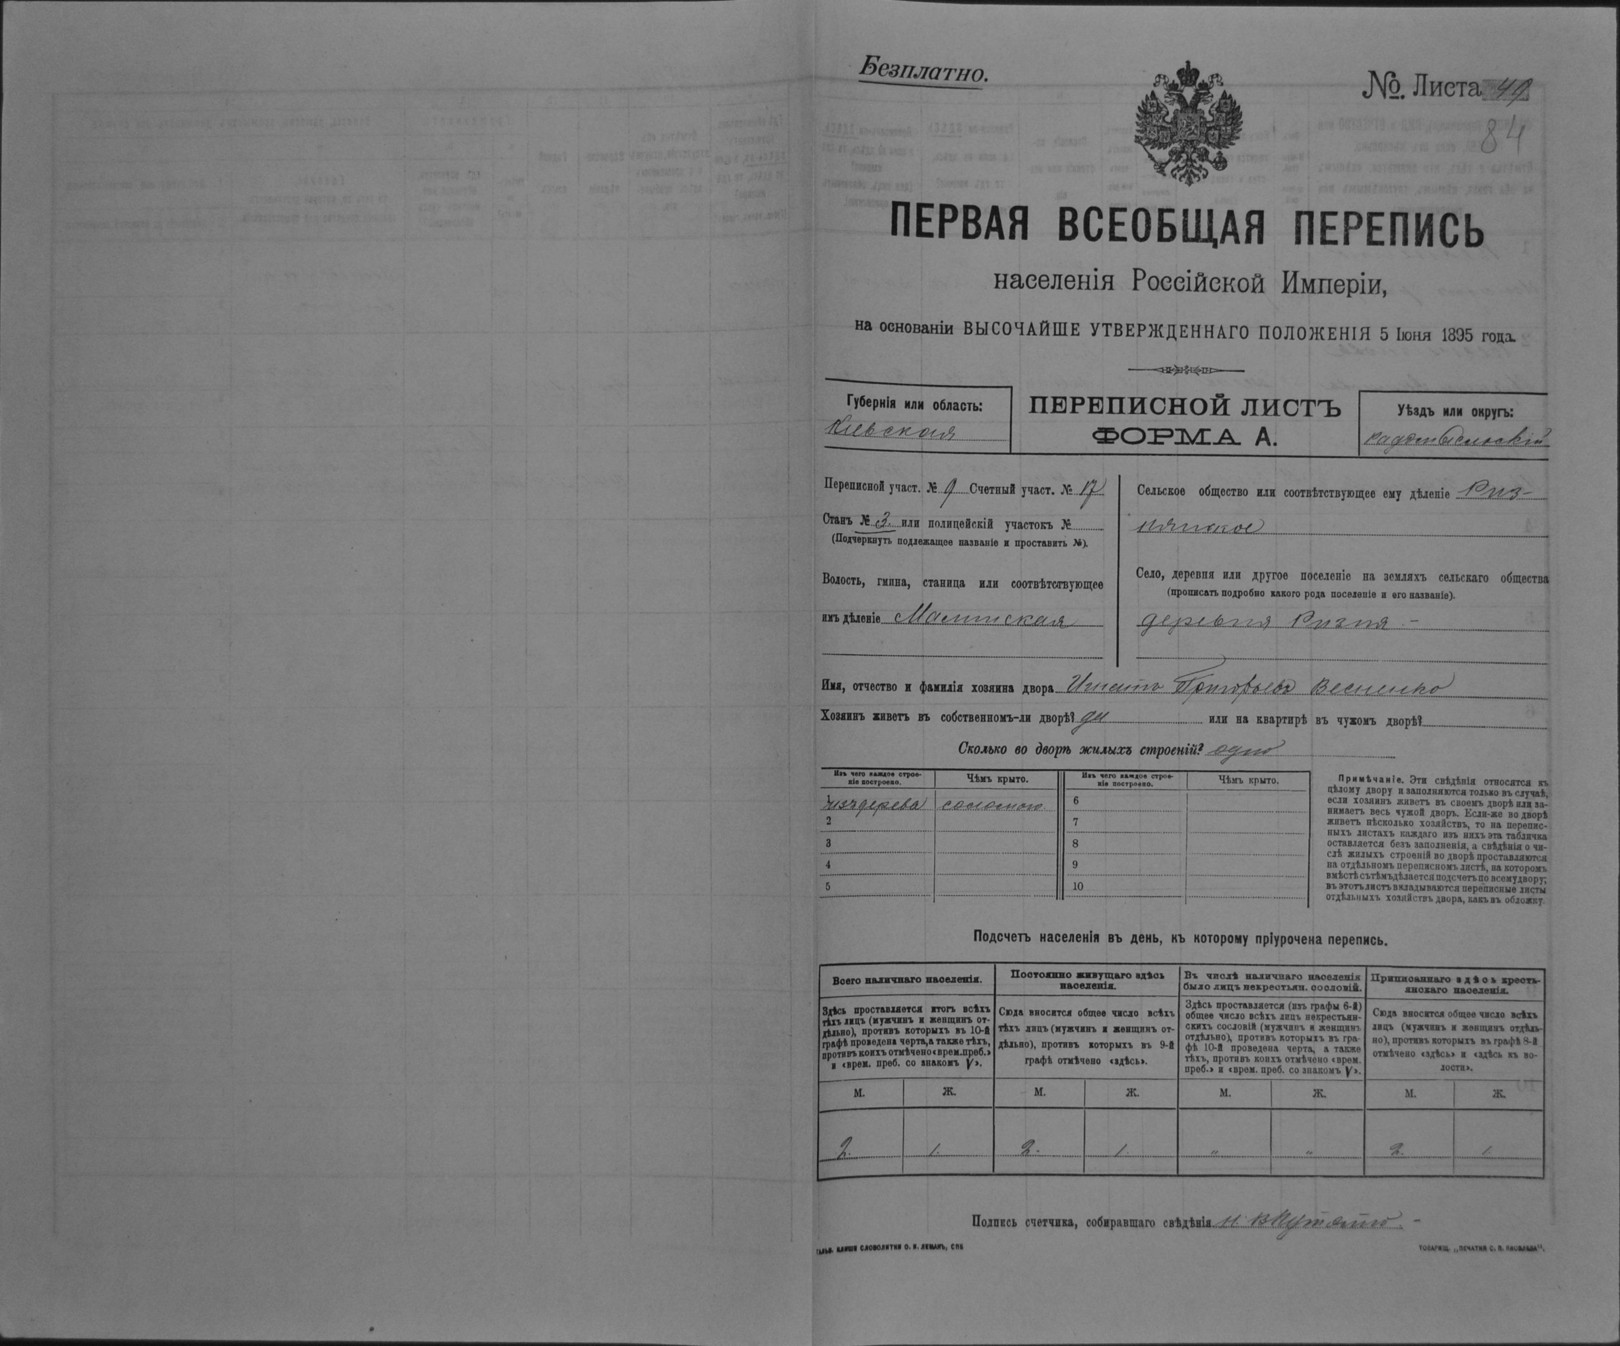 Безплатно.
№. Листа 49
84
ПЕРВАЯ ВСЕОБЩАЯ ПЕРЕПИСЬ
населенія Россійской Имперіи,
на основаніи ВЫСОЧАЙШЕ УТВЕРЖДЕННАГО ПОЛОЖЕНІЯ 5 Іюня 1895 года.
Губернія или область:
Кіевская
ПЕРЕПИСНОЙ ЛИСТЪ
ФОРМА А.
Уѣздъ или округъ:
Радомысльскій
Переписной участ. № 9 Счетный участ. № 17
Станъ № 3. или полицейскій участокъ №
(Подчеркнуть подлежащее названіе и проставить №).
Волость, гмина, станица или соотвѣтствующее
имъ дѣленіе Малинская
Сельское общество или соотвѣтствующее ему дѣленіе Риз-
нянское
Село, деревня или другое поселеніе на земляхъ сельскаго общества
(прописать подробно какого рода поселеніе и его названіе).
деревня Ризня -
Имя, отчество и фамилія хозяина двора Игнатъ Григорьевъ Весненко
Хозяинъ живетъ въ собственномъ-ли дворѣ? да или на квартирѣ въ чужомъ дворѣ?
Сколько во дворѣ жилыхъ строеній? одно
Изъ чего каждое строе-
ніе построено.
Чѣмъ крыто.
Изъ чего каждое строе-
ніе построено.
Чѣмъ крыто.
1 изъ дерева соломою 6
2 7
3 8
4 9
5 10
Примѣчаніе. Эти свѣдѣнія относятся къ
цѣлому двору и заполняются только въ случаѣ,
если хозяинъ живетъ въ своемъ дворѣ или за-
нимаетъ весь чужой дворъ. Если-же во дворѣ
живетъ нѣсколько хозяйствъ, то на перепис-
ныхъ листахъ каждаго изъ нихъ эта табличка
оставляется безъ заполненія, а свѣдѣнія о чи-
слѣ жилыхъ строеній во дворѣ проставляются
на отдѣльномъ переписномъ листѣ, на которомъ
вмѣстѣ съ тѣмъ дѣлается подсчетъ по всему двору;
въ этотъ листъ вкладываются переписные листы
отдѣльныхъ хозяйствъ двора, какъ въ обложку.
Подсчетъ населенія въ день, къ которому пріурочена перепись.
Всего наличнаго населенія.
Здѣсь проставляется итогъ всѣхъ
тѣхъ лицъ (мужчинъ и женщинъ от-
дѣльно), противъ которыхъ въ 10-й
графѣ проведена черта, а также тѣхъ,
противъ коихъ отмѣчено «врем. преб.»
и «врем. преб. со знакомъ V».
Постоянно живущаго здѣсь
населенія.
Сюда вносится общее число всѣхъ
тѣхъ лицъ (мужчинъ и женщинъ от-
дѣльно), противъ которыхъ въ 9-й
графѣ отмѣчено «здѣсь».
Въ числѣ наличнаго населенія
было лицъ некрестьян. сословій.
Здѣсь проставляется (изъ графы 6-й)
общее число всѣхъ лицъ некрестьян-
скихъ сословій (мужчинъ и женщинъ
отдѣльно), противъ которыхъ въ гра-
фѣ 10-й проведена черта, а также
тѣхъ, противъ коихъ отмѣчено «врем.
преб.» и «врем. преб. со знакомъ V».
Приписаннаго здѣсь кресть-
янскаго населенія.
Сюда вносится общее число всѣхъ
лицъ (мужчинъ и женщинъ отдѣль-
но), противъ которыхъ въ графѣ 8-й
отмѣчено «здѣсь» и «здѣсь къ во-
лости».
М. Ж. М. Ж. М. Ж. М. Ж.
2. 1. 2. 1. " " 2. 1.
Подпись счетчика, собиравшаго свѣдѣнія
ГАЛЬВ. КЛИШЕ СЛОВОЛИТНИ О. И. ЛЕМАНЪ, СПБ
ТОВАРИЩ. „ПЕЧАТНЯ С. П. ЯКОВЛЕВА".